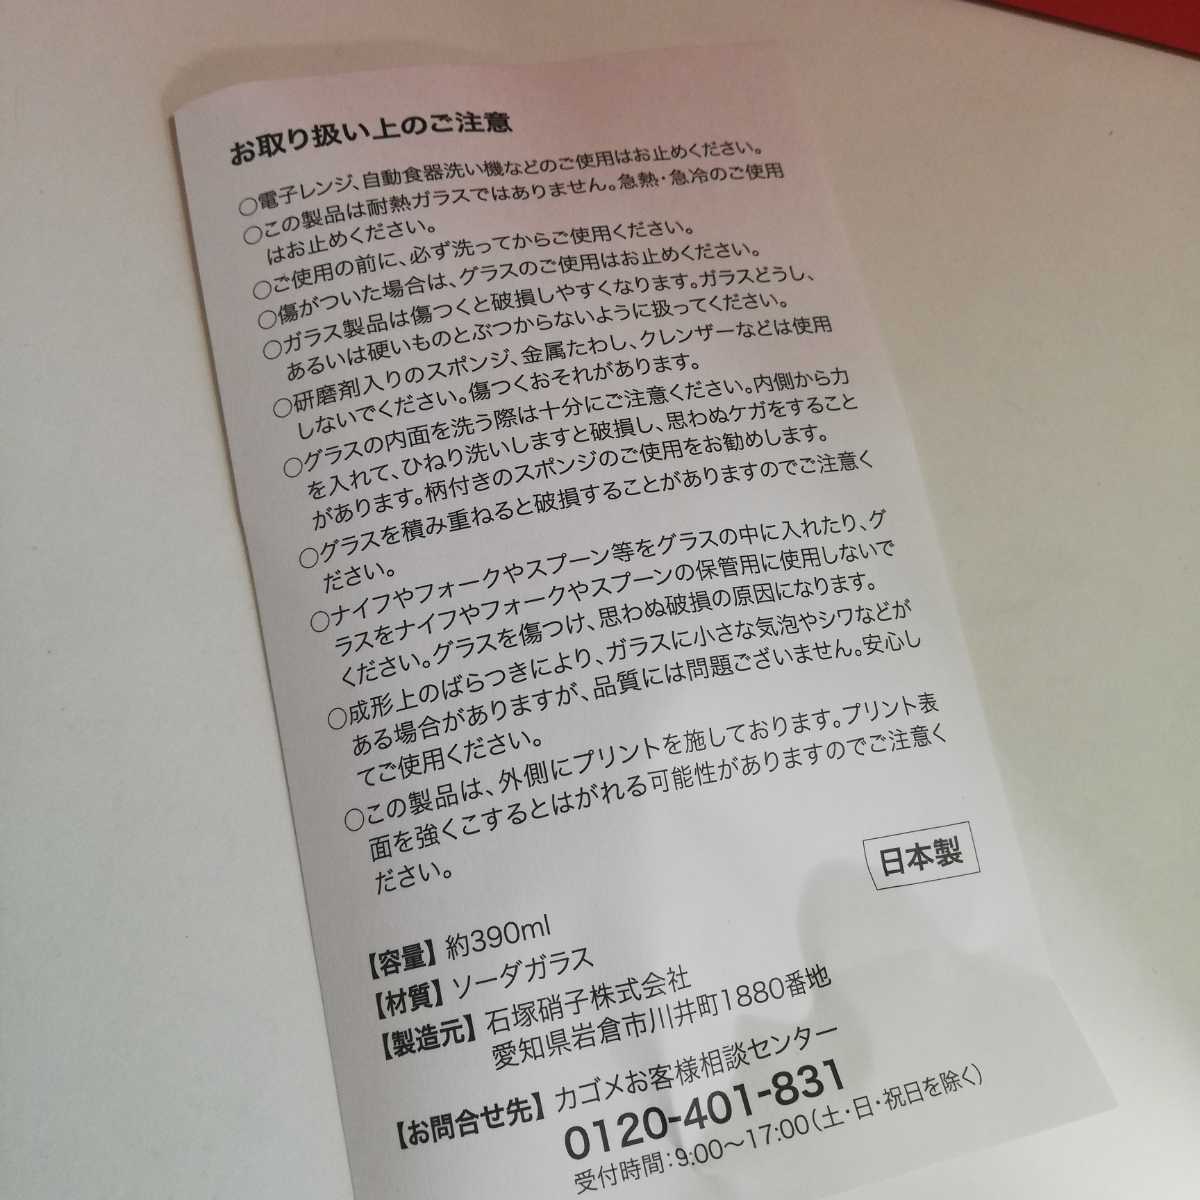 お取り扱い上のご注意
○電子レンジ、自動食器洗い機などのご使用はお止めください。
○この製品は耐熱ガラスではありません。急熱・急冷のご使用
はお止めください。
○ご使用の前に、必ず洗ってからご使用ください。
○傷がついた場合は、グラスのご使用はお止めください。
○ガラス製品は傷つくと破損しやすくなります。ガラスどうし、
あるいは硬いものとぶつからないように扱ってください。
○研磨剤入りのスポンジ、金属たわし、クレンザーなどは使用
しないでください。傷つくおそれがあります。
○グラスの内面を洗う際は十分にご注意ください。内側から力
を入れて、ひねり洗いしますと破損し、思わぬケガをすること
があります。柄付きのスポンジのご使用をお勧めします。
○グラスを積み重ねると破損することがありますのでご注意く
ださい。
○ナイフやフォークやスプーン等をグラスの中に入れたり、グ
ラスをナイフやフォークやスプーンの保管用に使用しないで
ください。グラスを傷つけ、思わぬ破損の原因になります。
○成形上のばらつきにより、ガラスに小さな気泡やシワなどが
ある場合がありますが、品質には問題ございません。安心し
てご使用ください。
○この製品は、外側にプリントを施しております。プリント表
面を強くこするとはがれる可能性がありますのでご注意く
ださい。
日本製
【容量】約390ml
【材質】ソーダガラス
【製造元】石塚硝子株式会社
愛知県岩倉市川井町1880番地
【お問合せ先】カゴメお客様相談センター
0120-401-831
受付時間：9:00～17:00（土・日・祝日を除く）